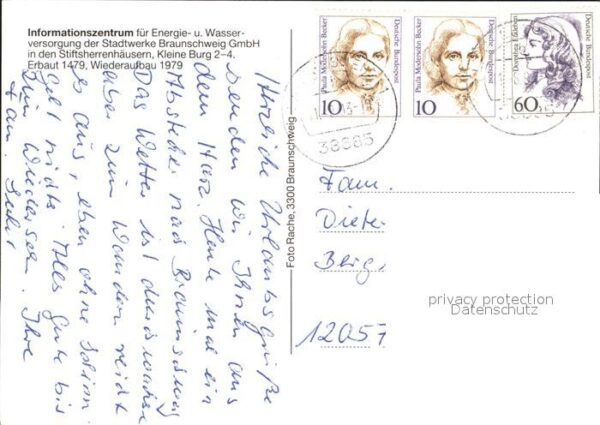 Informationszentrum für Energie- u. Wasser-
versorgung der Stadtwerke Braunschweig GmbH
in den Stiftsherrenhäusern, Kleine Burg 2–4.
Erbaut 1479, Wiederaufbau 1979
Herzliche Urlaubsgrüße
senden wir Ihnen aus
dem Harz. Heute mal ein
Abstecher nach Braunschweig
Das Wetter ist durchwachsen
aber zum Wandern reicht
es aus, eben ohne Schirm
geht nichts. Alles Gute bis
zum Wiedersehn. Ihre
Fam.
Foto Rache, 3300 Braunschweig
Paula Modersohn-Becker
Deutsche Bundespost
10
Paula Modersohn-Becker
Deutsche Bundespost
10
Dorothea Erxleben
Deutsche Bundespost
60
38685
Fam.
Dieter
Berg
12057
privacy protection
Datenschutz